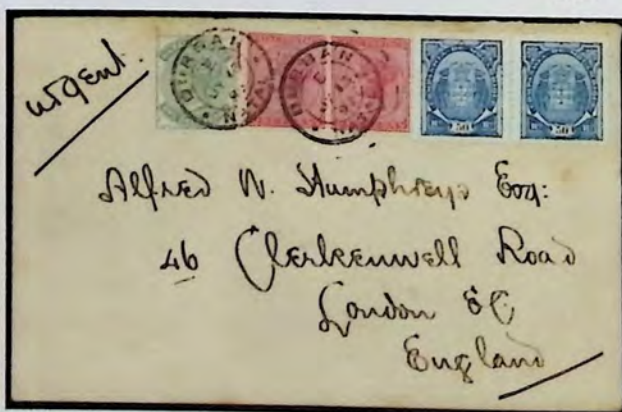 urgent.
DURBAN NATAL
DURBAN NATAL
50
50
Alfred W. Humphreys Esq:
46 Clerkenwell Road
London EC
England